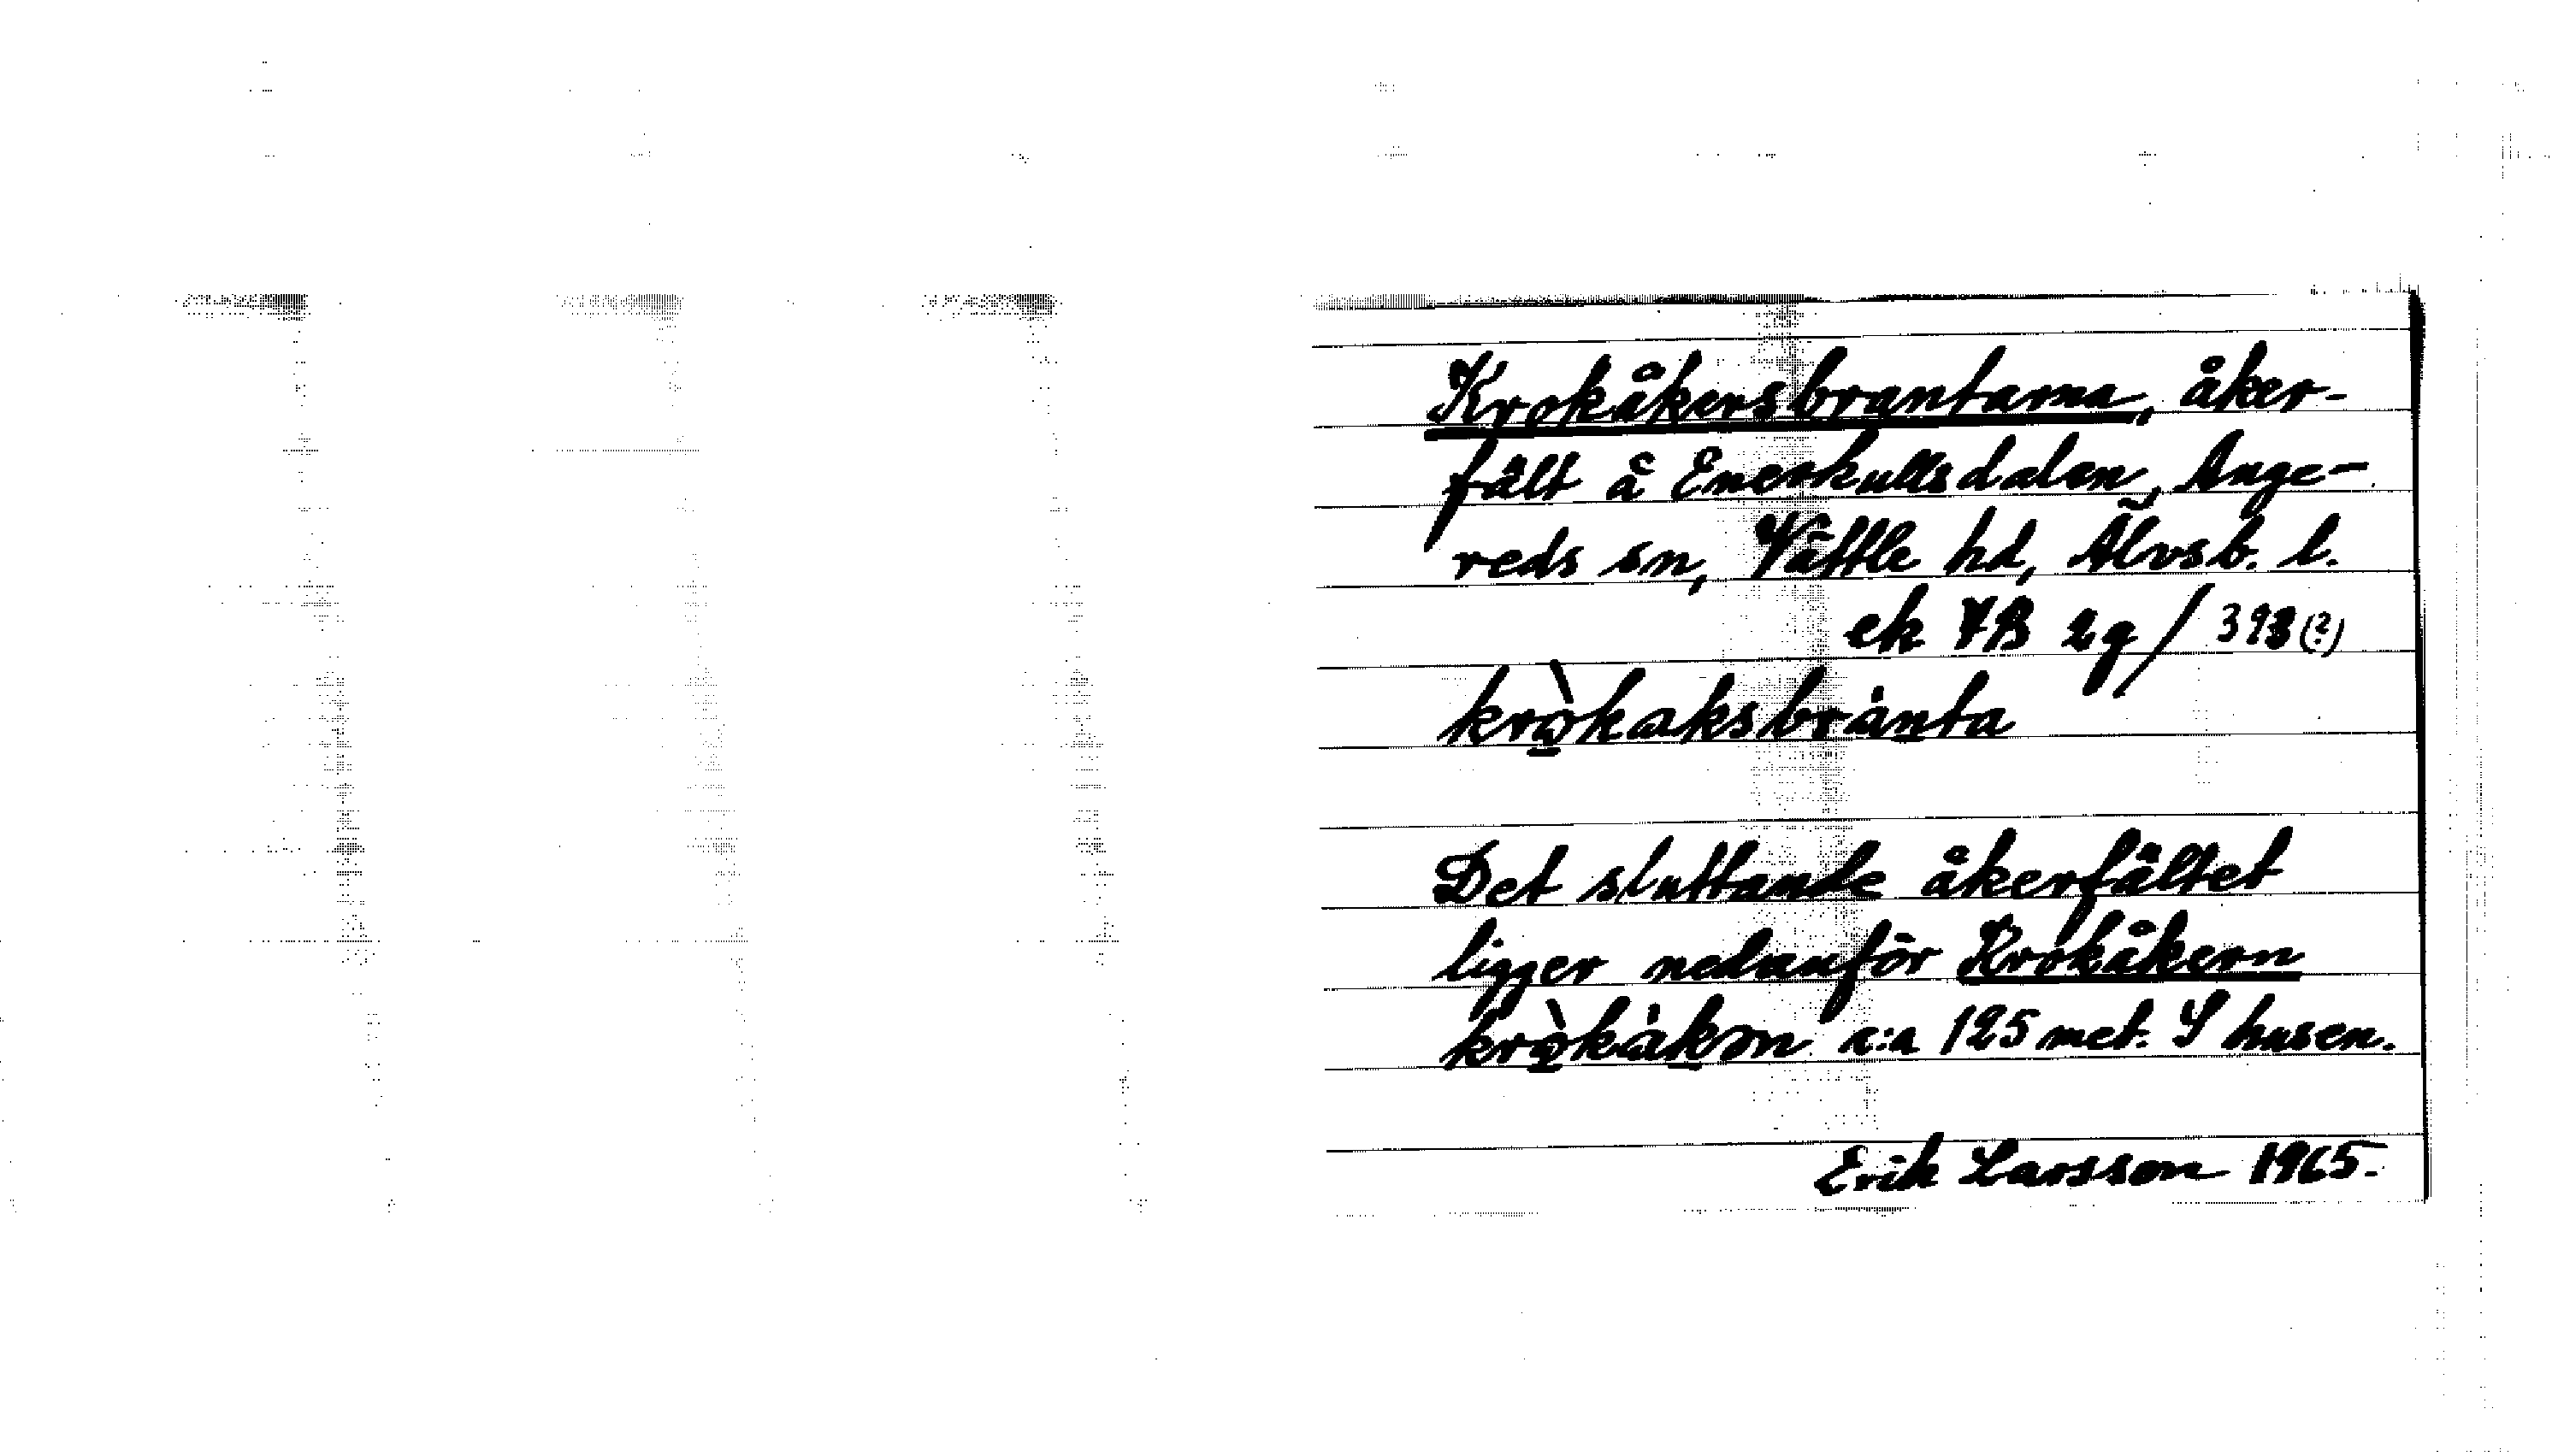 Krokåkersbrantarna, åker-
fält å Enerkullsdalen, Ange-
reds sn, Vättle hd, Älvsb. l.
ek 7B 2g / 393 (?)
krò̱kaksbrànta
Det sluttande åkerfältet
ligger nedanför Krokåkern
krò̱kàkən c:a 125 met. S husen.
Erik Larsson 1965.